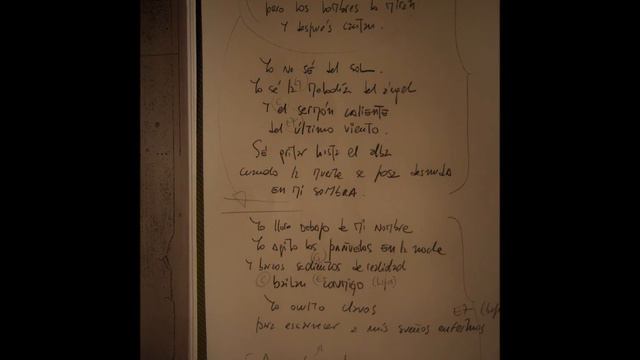 pero los hombres lo miran
Y después cantan.
Yo no sé del sol.
Yo sé la melodía del ángel
Y el sermón caliente
del último viento.
Sé gritar hasta el alba
cuando la muerte se posa desnuda
EN MI SOMBRA.
Yo lloro debajo de mi nombre
Yo agito los pañuelos en la noche
Y barcos sedientos de realidad
bailan conmigo
Yo oculto clavos
para escarnecer a mis sueños enfermos
E7